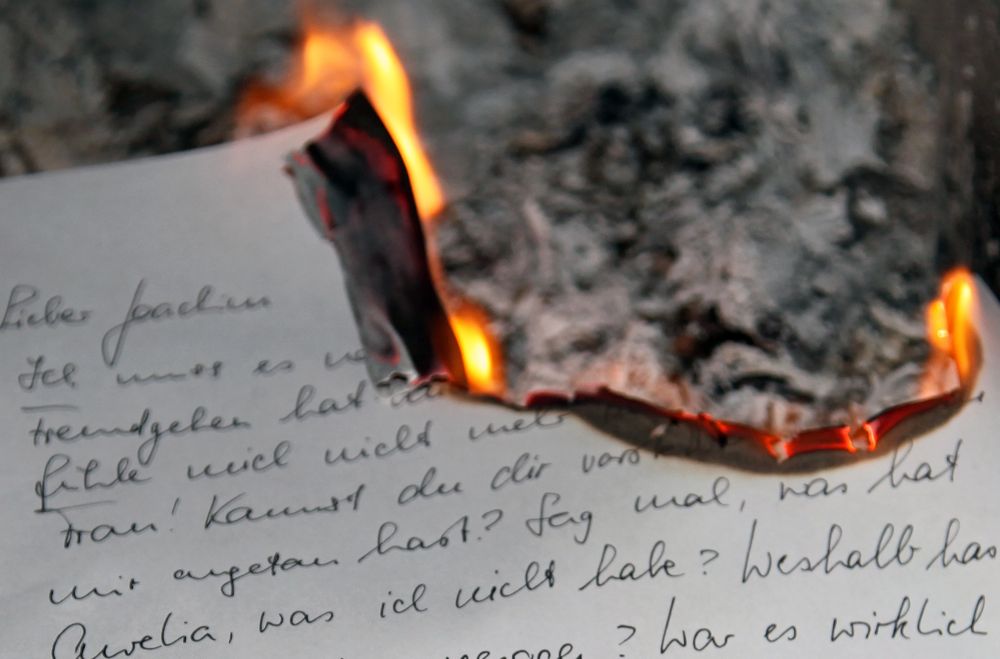 Lieber Joachim
Ich muss es
Fremdgehen hat
fühle mich nicht mehr
Frau! Kannst du dir vors
mir angetan hast? Sag mal, was hat
Aurelia, was ich nicht habe? Weshalb has
? War es wirklich